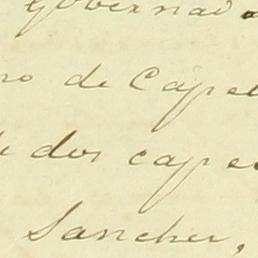 Governado
no de Capel
e dos cape
Sancher,